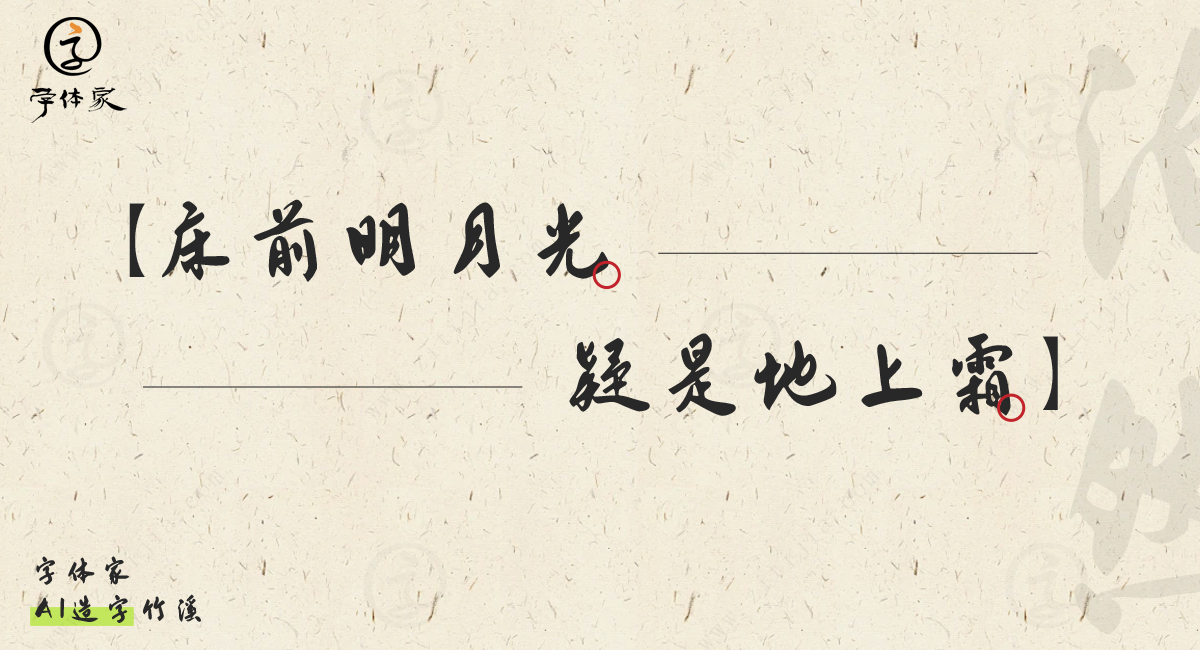 字体家
【床前明月光
疑是地上霜】
字体家
AI造字竹溪